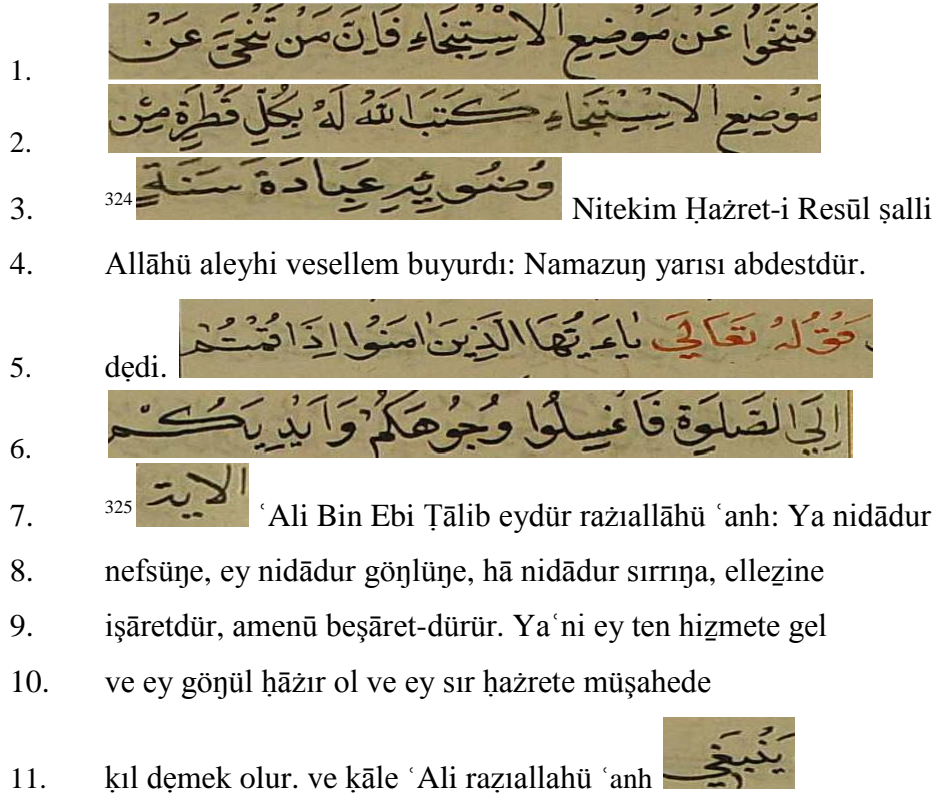 1. فَتَنَحَّوْا عَنْ مَوْضِعِ الْاسْتِنْجَاءِ فَاِنَّ مَنْ تَنَحَّيَ عَنْ
2. مَوْضِعِ الْاسْتِنْجَاءِ كَتَبَ اللّٰهُ لَهُ بِكُلِّ قَطْرَةٍ مِنْ
3. 324 وُضُوئِهِ عِبَادَةَ سَنَةٍ Nitekim Ḥażret-i Resūl ṣalli
4. Allāhü aleyhi vesellem buyurdı: Namazuŋ yarısı abdestdür.
5. dẹdi. قَوْلُهُ تَعَالَي يٰاءَيُّهَا الَّذِينَ اٰمَنُوا اِذَا قُمْتُمْ
6. اِلَي الصَّلٰوةِ فَاغْسِلُوا وُجُوهَكُمْ وَاَيْدِيَكُمْ
7. 325 الاية ʿAli Bin Ebi Ṭālib eydür rażıallāhü ʿanh: Ya nidādur
8. nefsüŋe, ey nidādur göŋlüŋe, hā nidādur sırrıŋa, elleẕine
9. işāretdür, amenū beşāret-dürür. Yaʿni ey ten hiẕmete gel
10. ve ey göŋül ḥāżır ol ve ey sır ḥażrete müşahede
11. ḳıl dẹmek olur. ve ḳāle ʿAli raẓıallahü ʿanh يَنْبَغِي